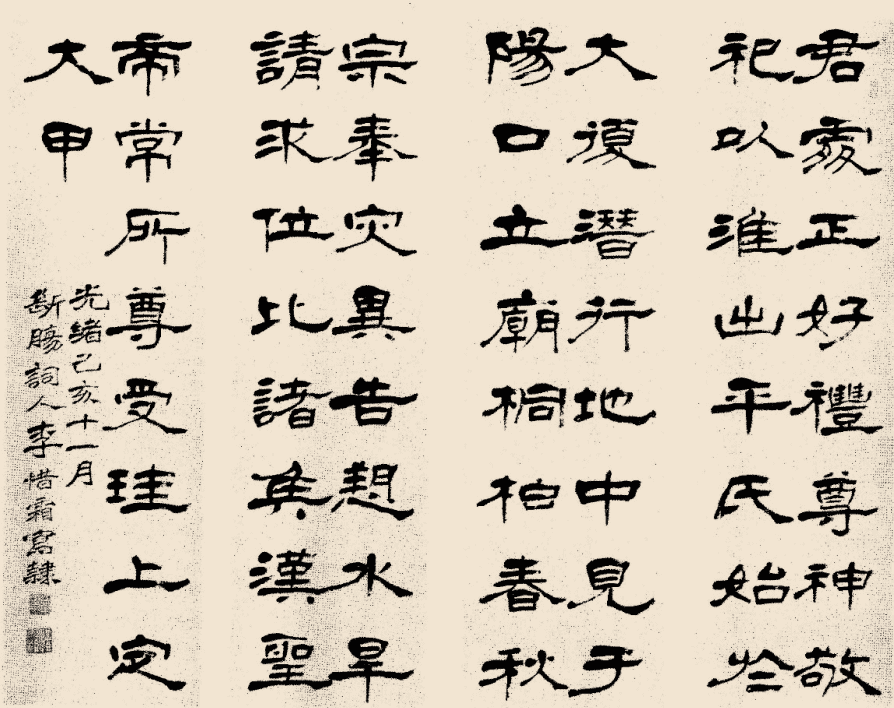 君處正好禮尊神敬
祀以淮出平氏始於
大復潛行地中見于
陽口立廟桐柏春秋
宗奉灾異告愬水旱
請求位比諸矦漢聖
帝常所尊受珪上定
大甲
光緒己亥十一月
斷腸詞人李惜霜寫隸